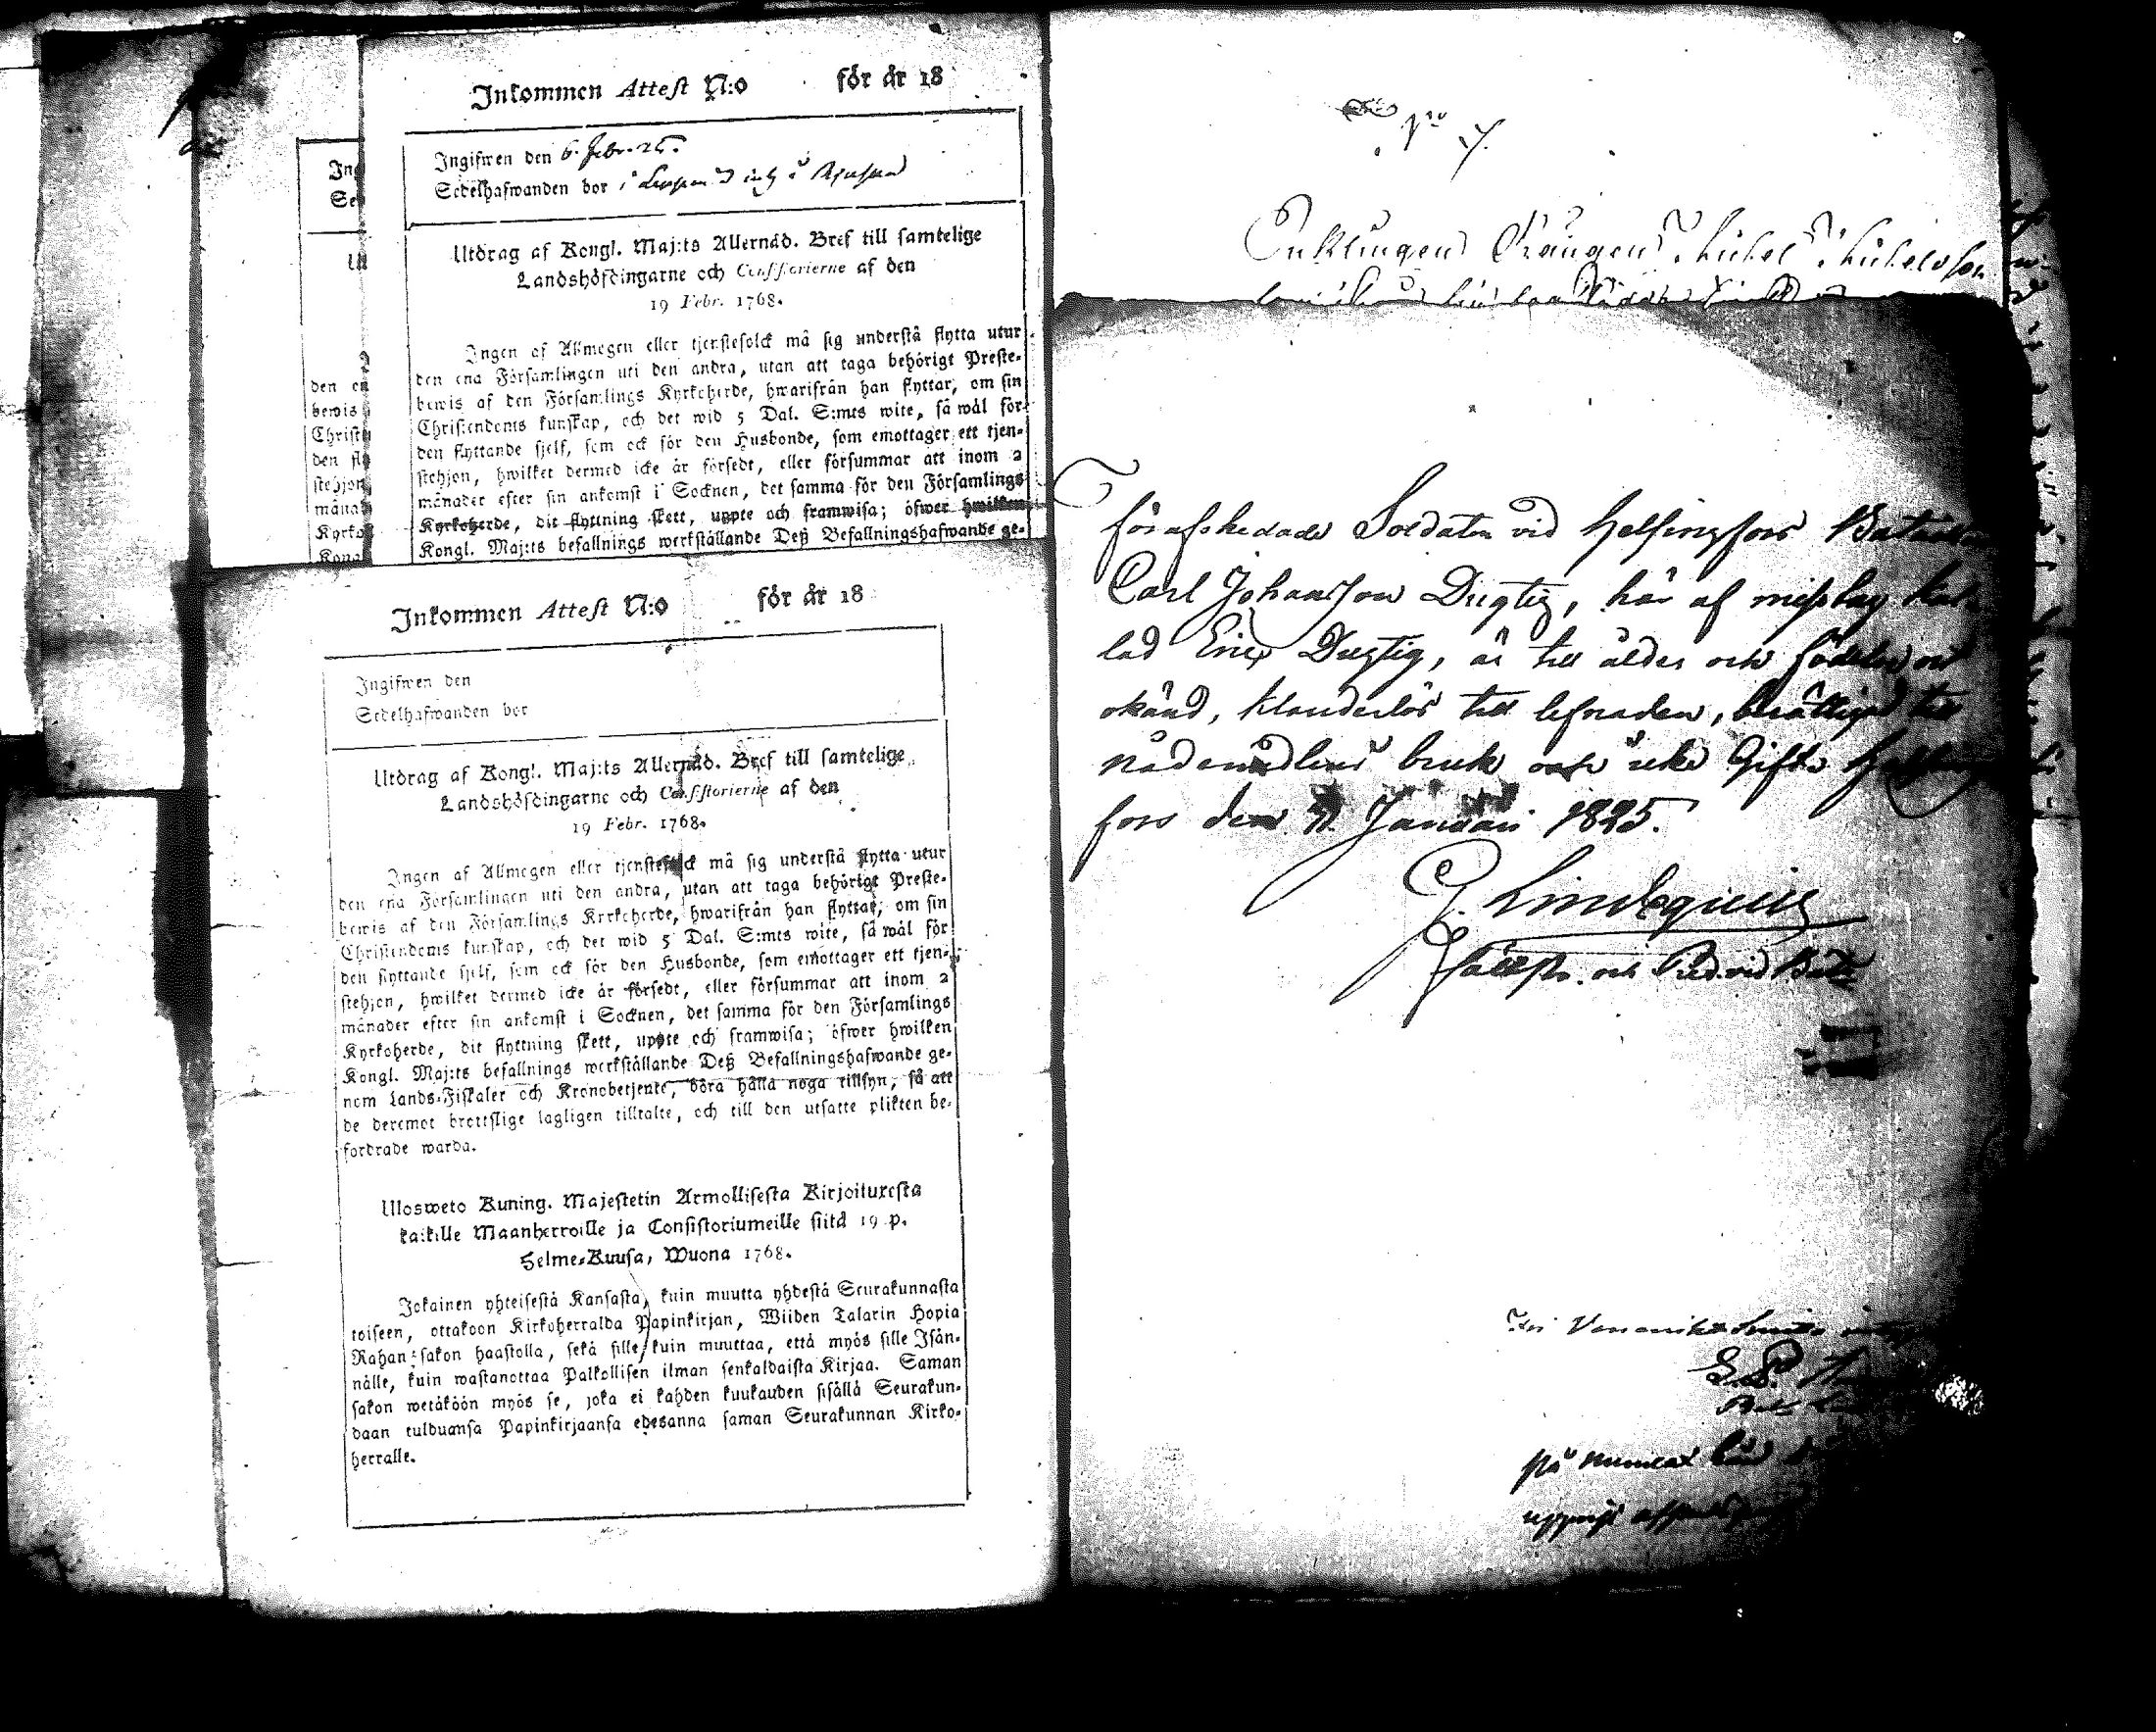 Inkommen Attest N:o för år 18
Ingifwen den 6. Febr. 25.
Sedelhafwanden bor i
Utdrag af Kongl. Maj:ts Allernåd. Bref till samtelige
Landshöfdingarne och Consistorierne af den
19 Febr. 1768.
Ingen af Allmogen eller tjenstefolck må sig understå flytta utur
den ena Församlingen uti den andra, utan att taga behörigt Preste-
bewis af den Församlings Kyrkoherde, hwarifrån han flyttar, om sin
Christendoms kunskap, och det wid 5 Dal. S:mts wite, så wäl för
den flyttande sjelf, som ock för den Husbonde, som emottager ett tjen-
stehjon, hwilket dermed icke är försedt, eller försummar att inom 2
månader efter sin ankomst i Socknen, det samma för den Församlings
Kyrkoherde, dit flyttning skett, uppte och framwisa; öfwer hwilken
Kongl. Maj:ts befallnings werkställande Deß Befallningshafwande ge-
Ing
Se
U
den en
bewis
Christe
den fly
stehjon
måna
Kyrko
Kong
Inkommen Attest N:o för år 18
Ingifwen den
Sedelhafwanden bor
Utdrag af Kongl. Maj:ts Allernåd. Bref till samtelige
Landshöfdingarne och Consistorierne af den
19 Febr. 1768.
Ingen af Allmogen eller tjenstefolck må sig understå flytta utur
den ena Församlingen uti den andra, utan att taga behörigt Preste-
bewis af den Församlings Kyrkoherde, hwarifrån han flyttar, om sin
Christendoms kunskap, och det wid 5 Dal. S:mts wite, så wäl för
den flyttande sjelf, som ock för den Husbonde, som emottager ett tjen-
stehjon, hwilket dermed icke är försedt, eller försummar att inom 2
månader efter sin ankomst i Socknen, det samma för den Församlings
Kyrkoherde, dit flyttning skett, uppte och framwisa; öfwer hwilken
Kongl. Maj:ts befallnings werkställande Deß Befallningshafwande ge-
nom Lands-Fiskaler och Kronobetjente, böra hålla noga tillsyn, så att
de deremot brottslige lagligen tilltalte, och till den utsatte plikten be-
fordrade warda.
Ulosweto Kuning. Majestetin Armollisesta Kirjoituxesta
kaikille Maanherroille ja Consistoriumeille siitä 19 p.
Helme-Kuusa, Wuona 1768.
Jokainen yhteisestä Kansasta, kuin muutta yhdestä Seurakunnasta
toiseen, ottakoon Kirkoherralda Papinkirjan, Wiiden Talarin Hopia
Rahan sakon haastolla, sekä sille, kuin muuttaa, että myös sille Isän-
nälle, kuin wastanottaa Palkollisen ilman senkaldaista Kirjaa. Saman
sakon wetäköön myös se, joka ei kahden kuukauden sisällä Seurakun-
daan tulduansa Papinkirjaansa edesanna saman Seurakunnan Kirko-
herralle.
No 7.
Enklingen Drängen Michel Michelsson
förafskedade Soldaten vid Helsingfors Bataillon
Carl Johansson Dugtig, här af misstag kal-
lad Eric Dugtig, är till ålder och födelse ort
okänd, klanderlös till lefnaden, berättigad till
nådemedlens bruk och icke Gift. Helsing
fors den 7. Januari 1825.
G. Lindeqvist
och Pred. vid Bat
på